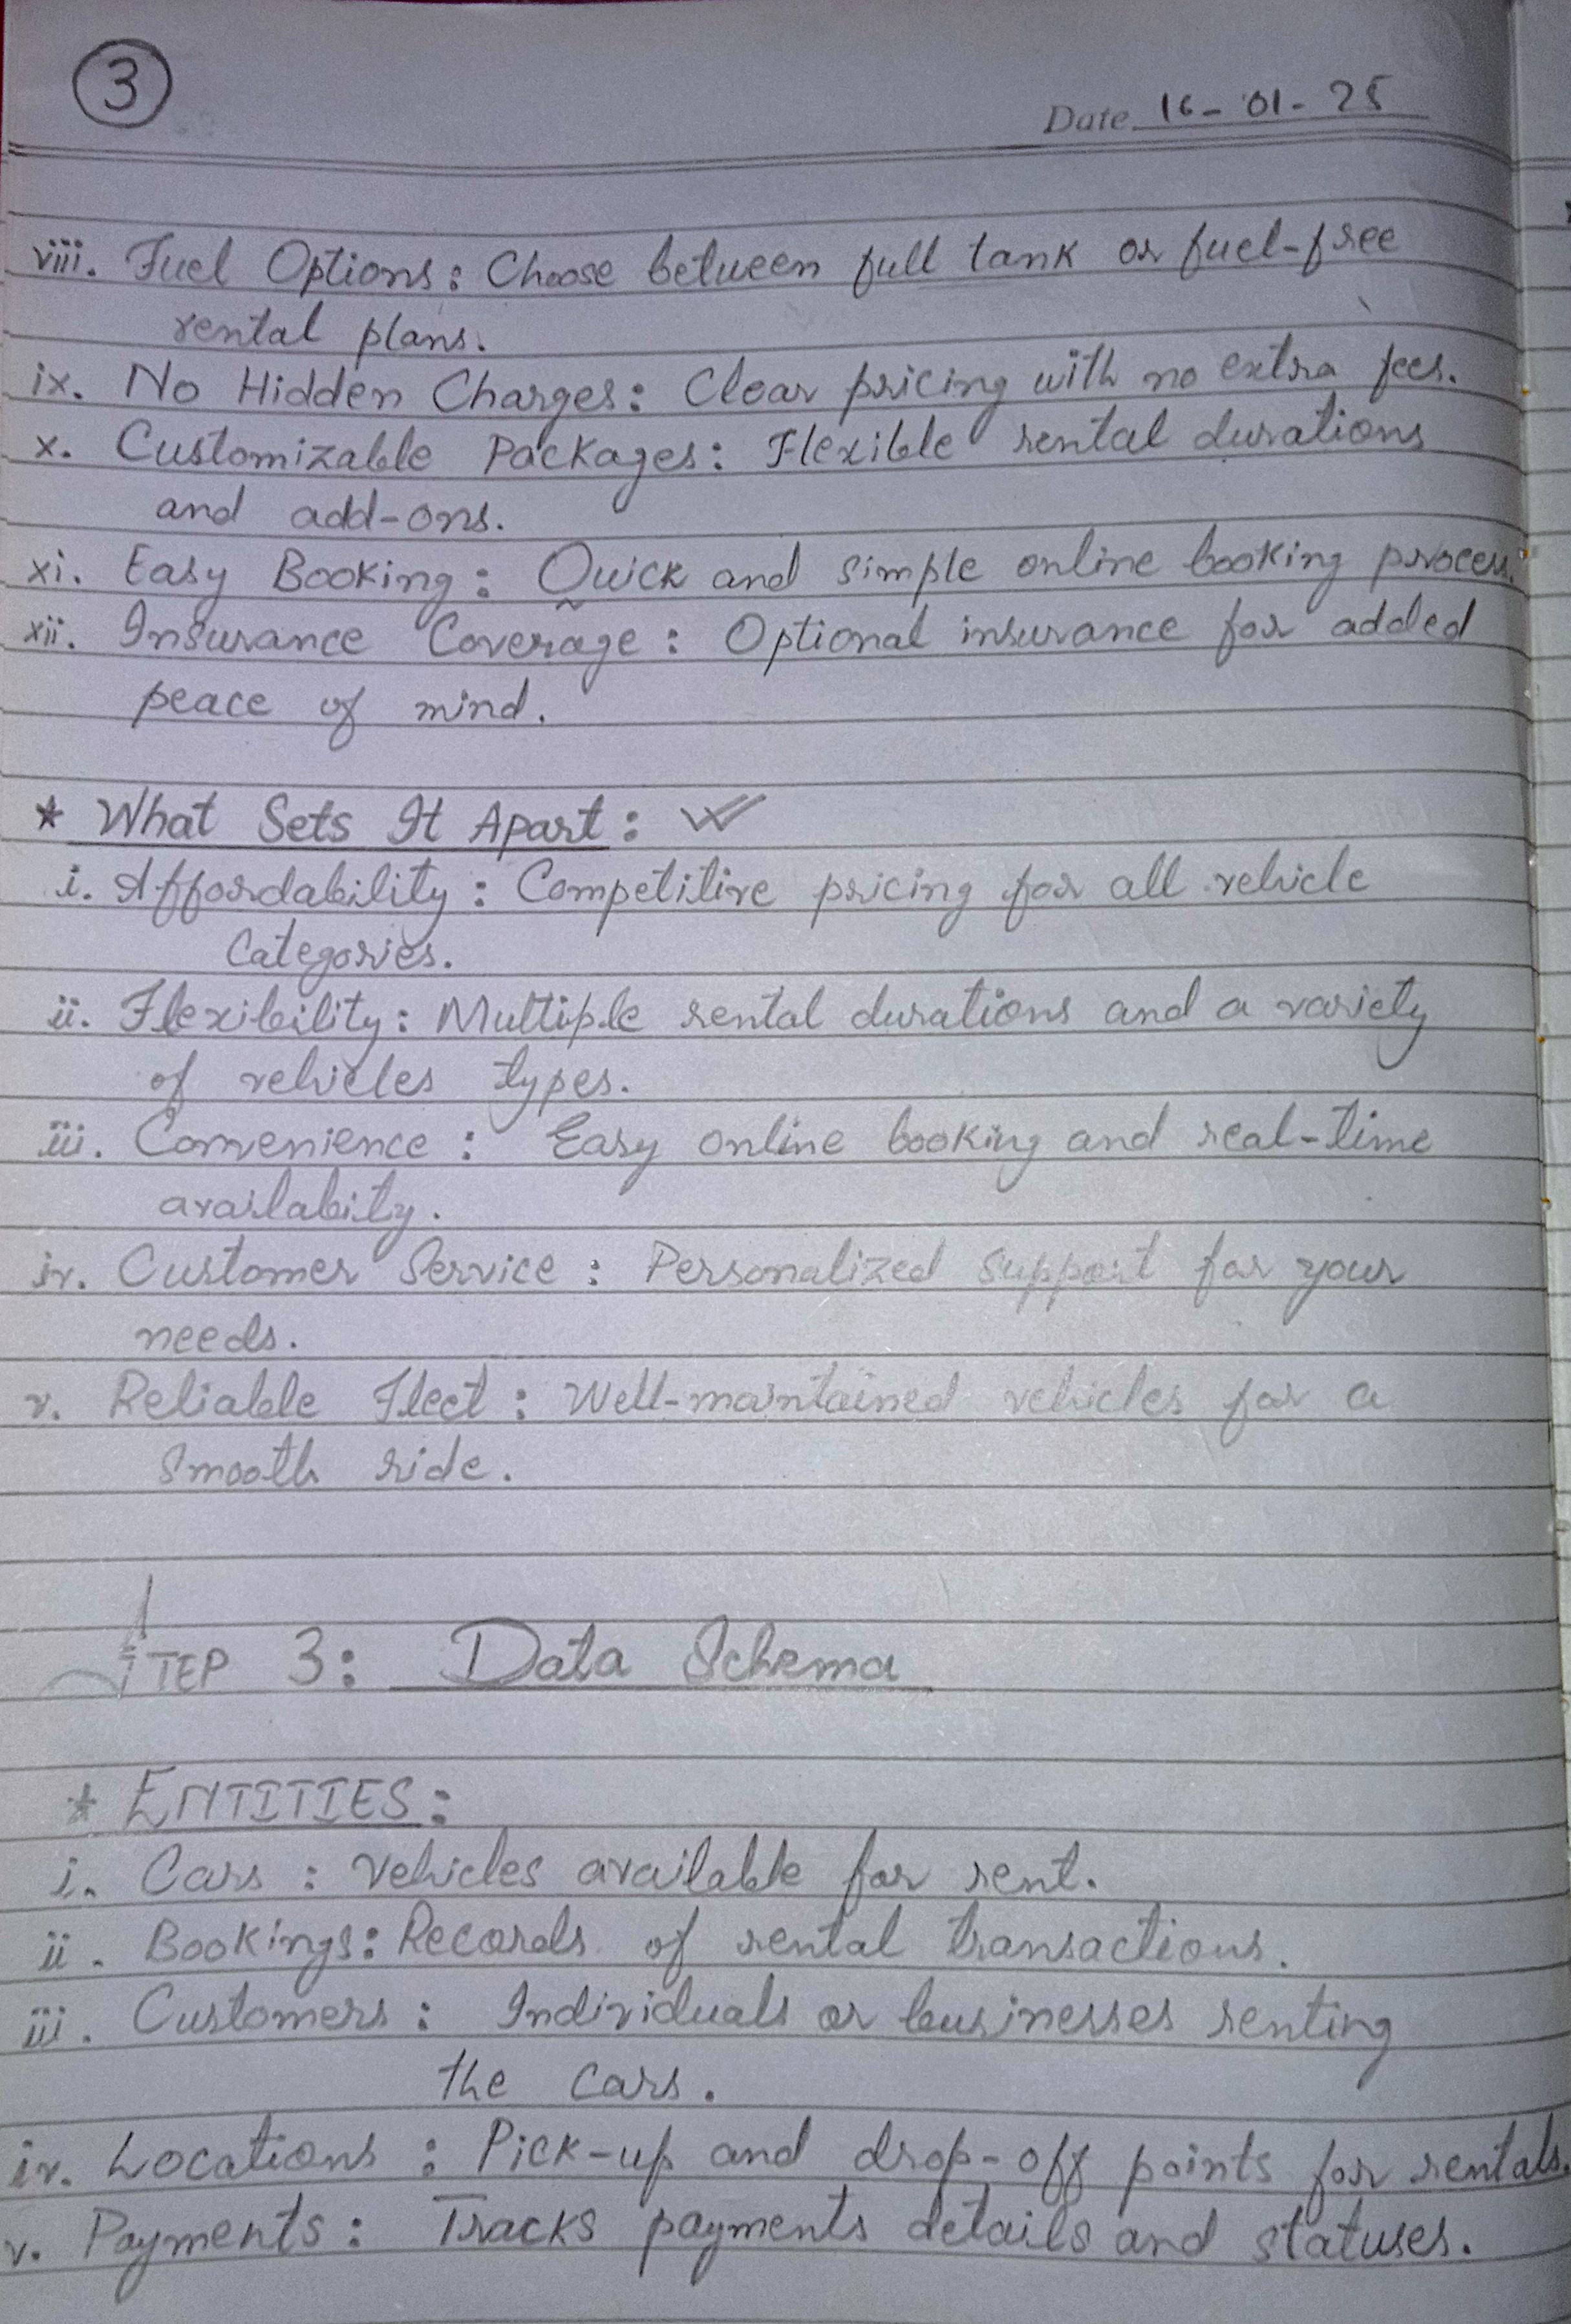 3
Date 16-01-25
viii. Fuel Options: Choose between full tank or fuel-free
rental plans.
ix. No Hidden Charges: Clear pricing with no extra fees.
x. Customizable Packages: Flexible rental durations
and add-ons.
xi. Easy Booking: Quick and simple online booking process.
xii. Insurance Coverage: Optional insurance for added
peace of mind.
* What Sets It Apart:
i. Affordability: Competitive pricing for all vehicle
Categories.
ii. Flexibility: Multiple rental durations and a variety
of vehicles types.
iii. Convenience: Easy online booking and real-time
availabity.
iv. Customer Service: Personalized support for your
needs.
v. Reliable Fleet: Well-maintained vehicles for a
smooth ride.
STEP 3: Data Schema
* ENTITIES:
i. Cars: Vehicles available for rent.
ii. Bookings: Records of rental transactions.
iii. Customers: Individuals or businesses renting
the cars.
iv. Locations: Pick-up and drop-off points for rentals.
v. Payments: Tracks payments details and statuses.